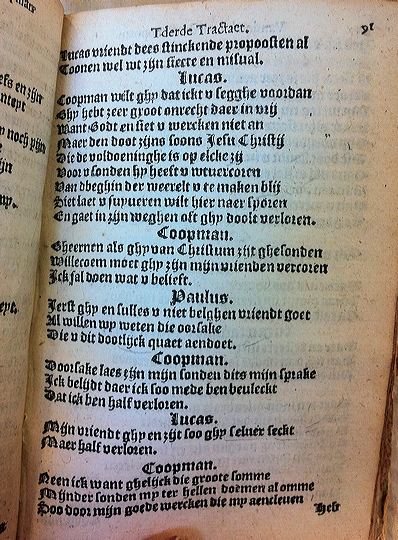 Tderde Tractaet. 91
Lucas vriendt dees stinckende propoosten al
Toonen wel wt zijn siecte en misual.
Lucas.
Coopman wilt ghy dat ickt v segghe voordan
Ghy hebt zeer groot onrecht daer in vrij
Want Godt en siet v wercken niet an
Maer den doot zijns soons Jesu Christij
Die de voldoeninghe is op elcke zij
Voor v sonden hy heeft v wtuercoren
Van dbeghin der weerelt v te maken blij
Siet laet v supueren wilt hier naer sporen
En gaet in zijn weghen oft ghy doolt verloren.
Coopman.
Gheernen als ghy van Christum zijt ghesonden
Willecoem moet ghy zijn mijn vrienden vercoren
Ick sal doen wat v belieft.
Paulus.
Jerst ghy en sulles v niet belghen vriendt goet
Al willen wy weten die oorsake
Die v dit dootlijck quaet aendoet.
Coopman.
Doorsake laes zijn mijn sonden dits mijn sprake
Ick belijdt daer ick soo mede ben beuleckt
Dat ick ben half verloren.
Lucas.
Mijn vriendt ghy en zijt soo ghy seluer seckt
Maer half verloren.
Coopman.
Neen ick want ghelijck die groote somme
Mijnder sonden my ter hellen doemen al omme
Soo door mijn goede wercken die my aencleuen
Heb
efs en zijn
noch pijn
my.